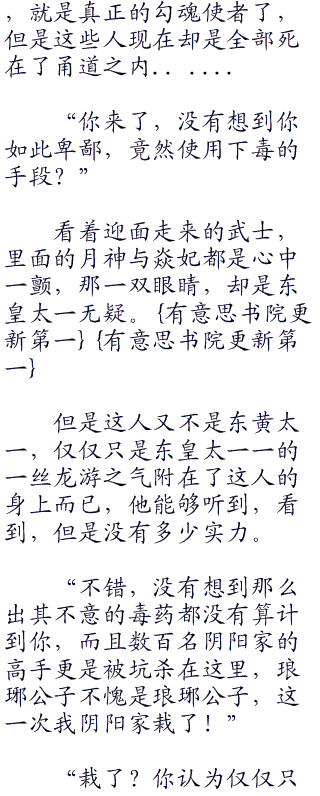 ，就是真正的勾魂使者了，
但是这些人现在却是全部死
在了甬道之内．．．．．．
“你来了，没有想到你
如此卑鄙，竟然使用下毒的
手段？”
看着迎面走来的武士，
里面的月神与焱妃都是心中
一颤，那一双眼睛，却是东
皇太一无疑。{有意思书院更
新第一}{有意思书院更新第
一}
但是这人又不是东黄太
一，仅仅只是东皇太一一的
一丝龙游之气附在了这人的
身上而已，他能够听到，看
到，但是没有多少实力。
“不错，没有想到那么
出其不意的毒药都没有算计
到你，而且数百名阴阳家的
高手更是被坑杀在这里，琅
琊公子不愧是琅琊公子，这
一次我阴阳家栽了！”
“栽了？你认为仅仅只